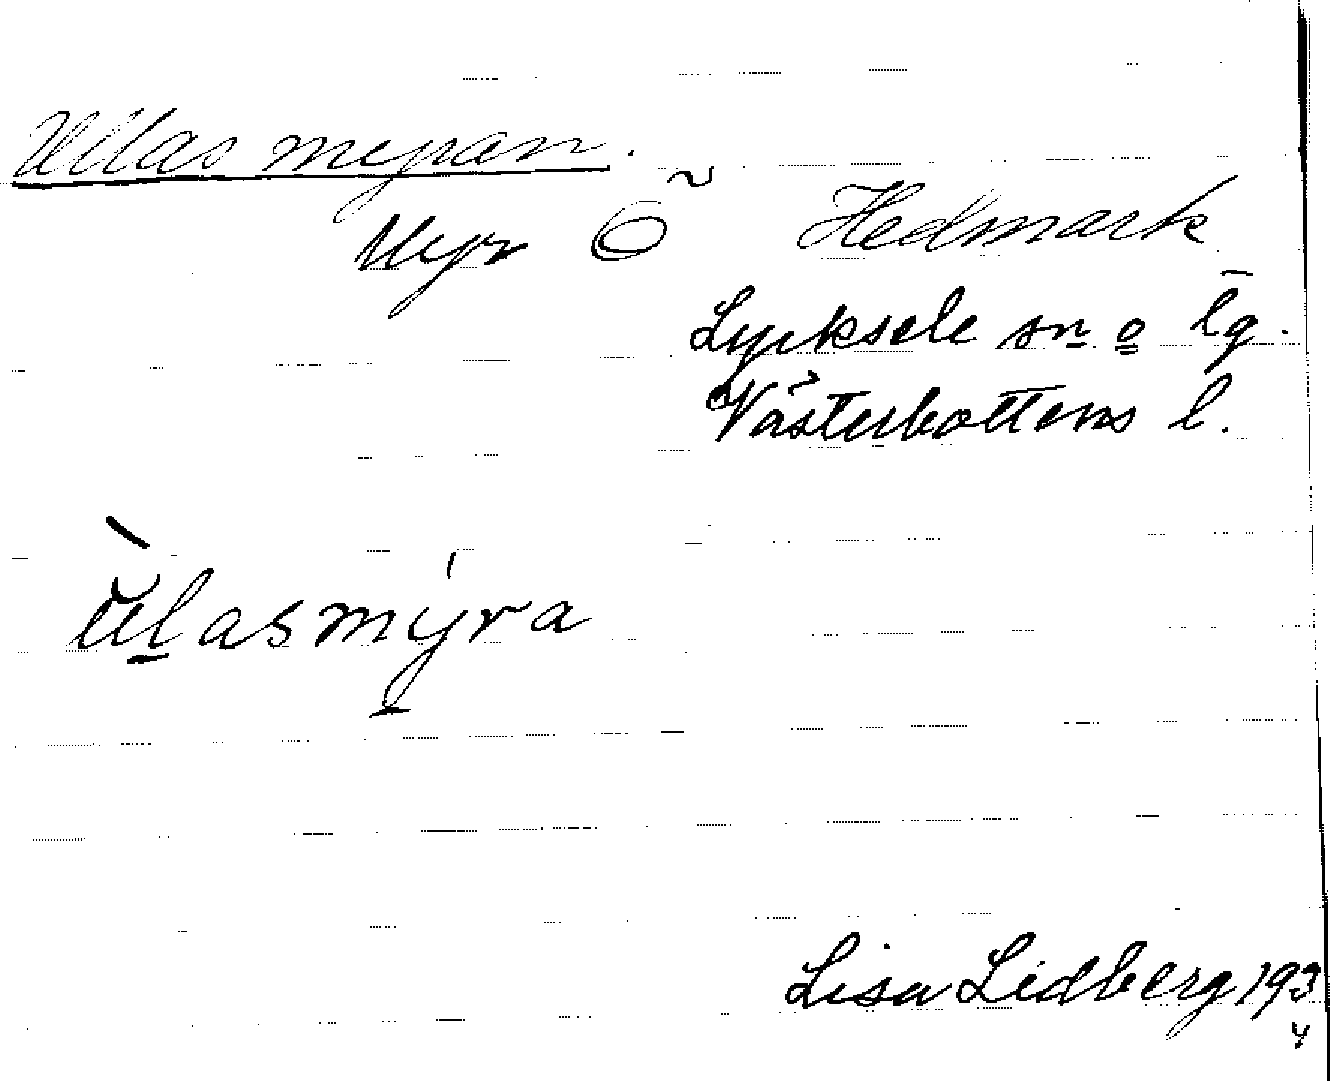 Ullas myran.
Myr Ö Hedmark
Lycksele sn o lg.
Västerbottens l.
ùlasmýra
Lisa Lidberg 193
4